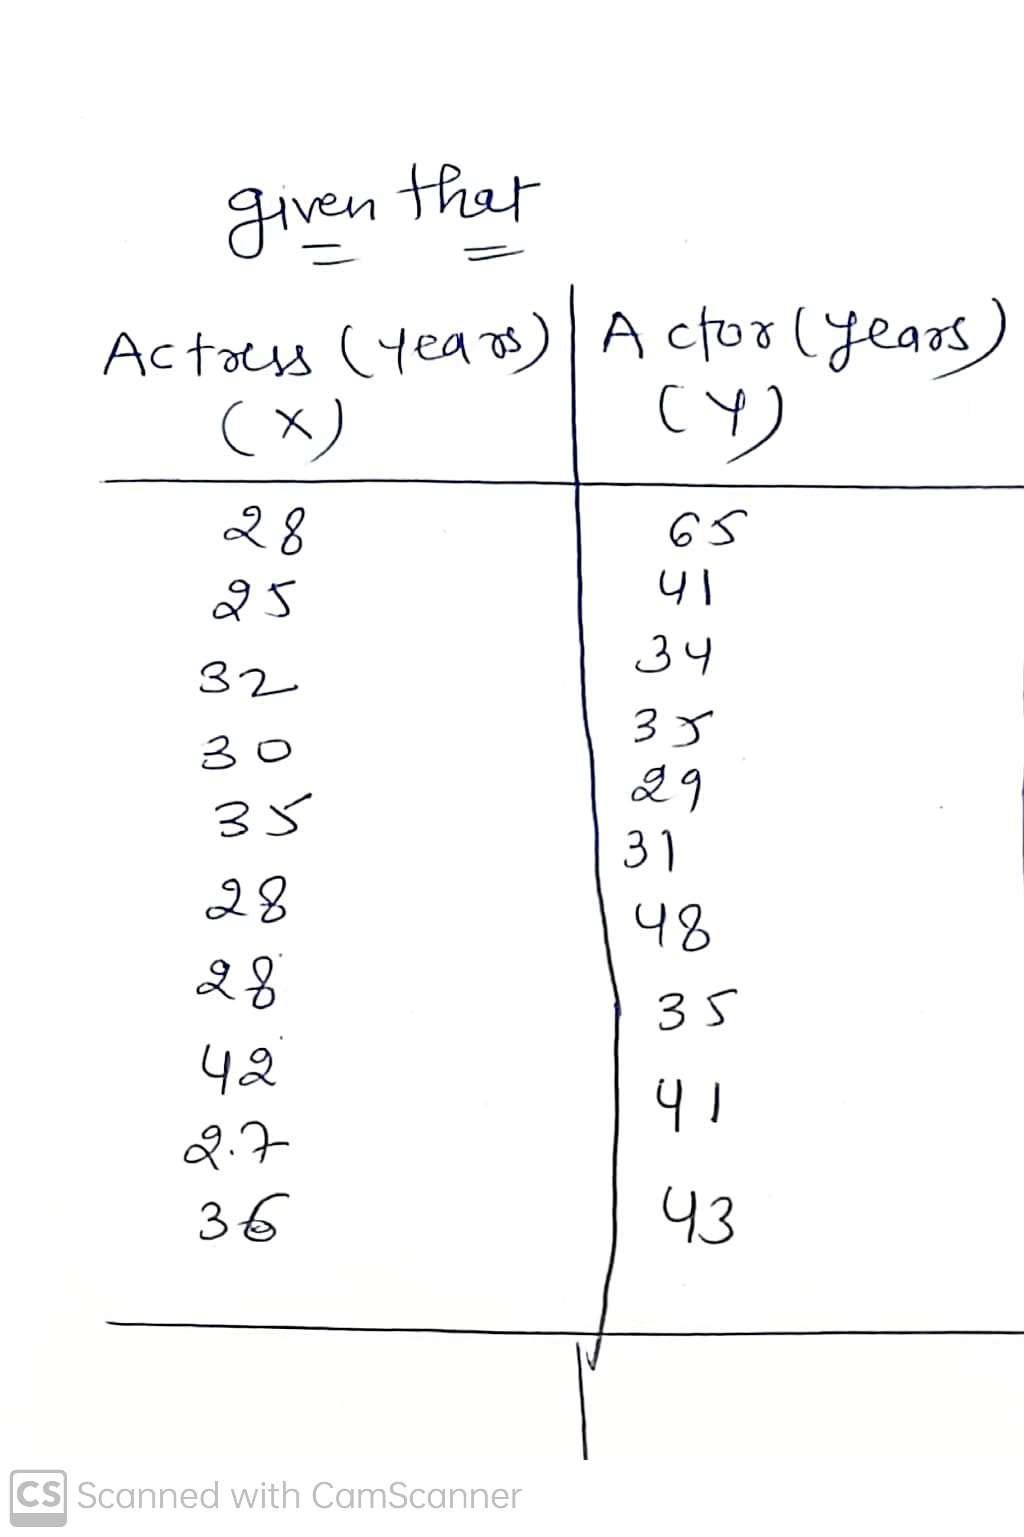 given that
Actress (Years) | Actor (years)
(X) (Y)
28 65
25 41
32 34
30 35
35 29
28 31
28 48
42 35
2.7 41
36 43
CS Scanned with CamScanner